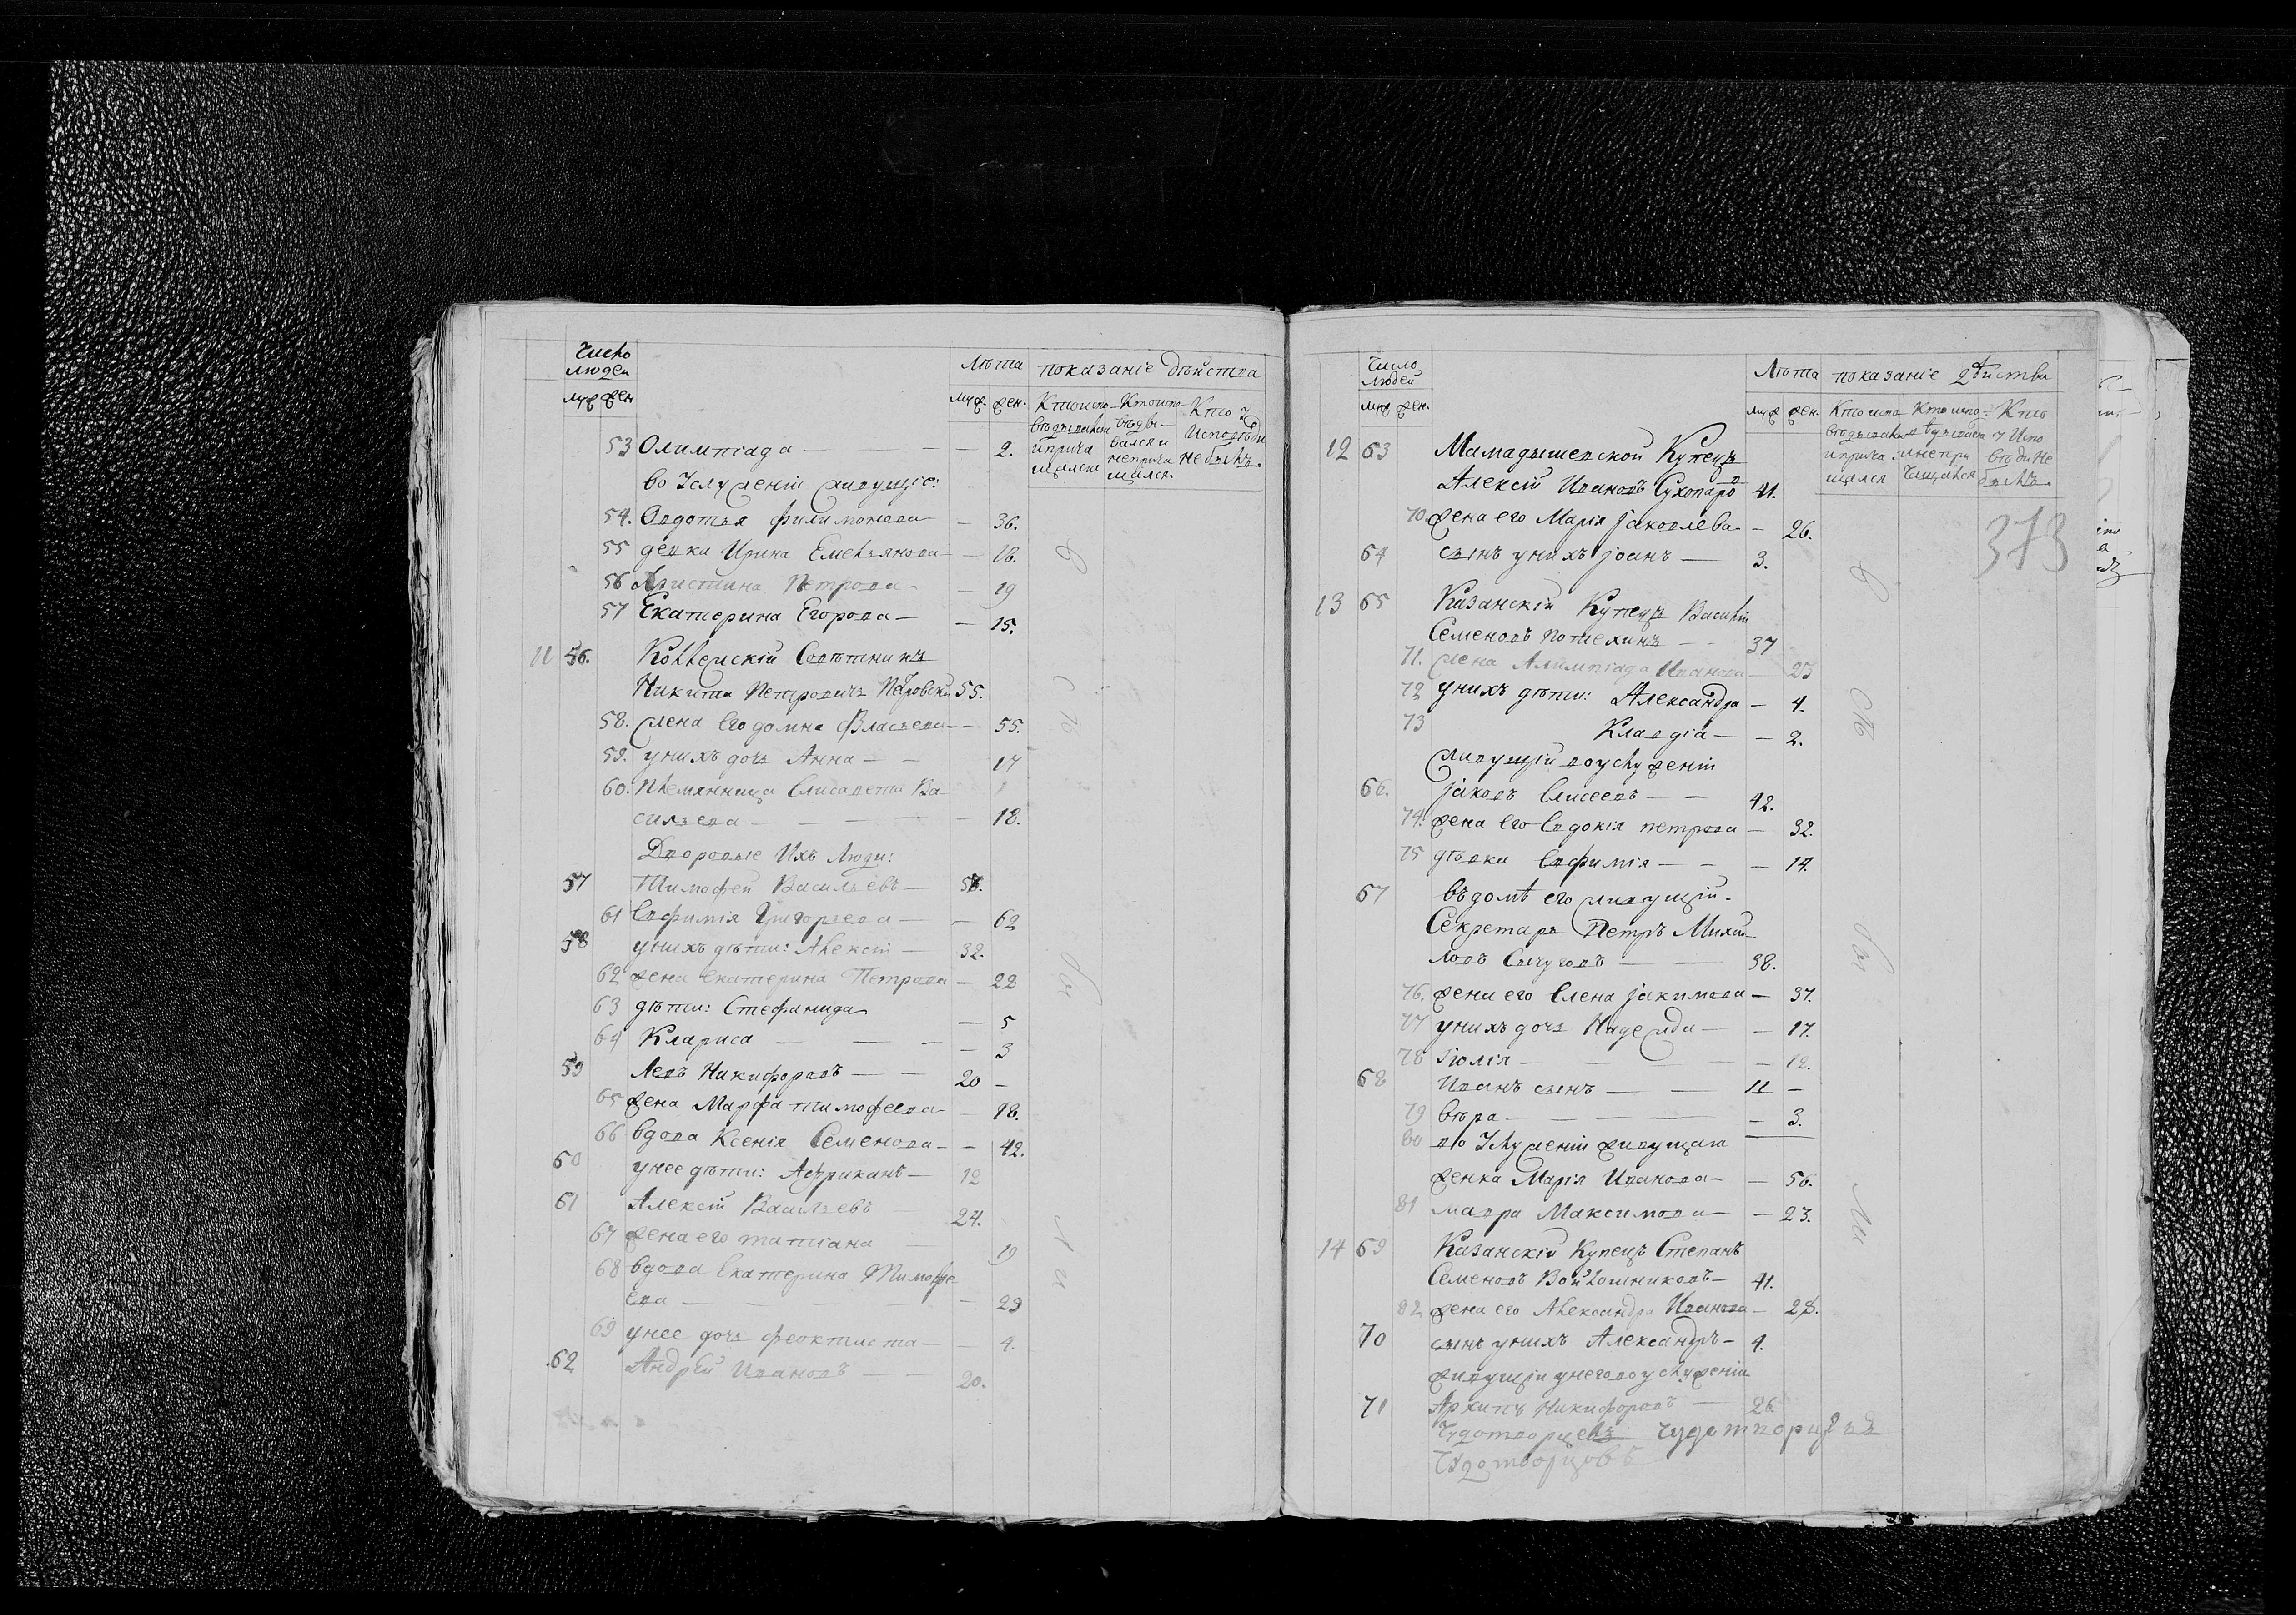 Число людей
муж. жен.
Лѣта
муж. жен.
показаніе дѣйства
Кто испо- Кто испо- Кто у
вѣдывался вѣды- Исповѣди
и прича вался и не былъ.
щался не прича
щался.
53 Олимпіада — — 2.
во Услуженіи живущіе:
54. Овдотья Филимонова — 36.
55 девка Ирина Емельянова — 18.
56 Христина Петрова — 19
57 Екатерина Егорова — 15.
11 56. Коллежскій Совѣтникъ
Никита Петровичъ Петровскій 55.
58. жена Его домна Власьева — 55.
59. у нихъ дочь Анна — — 17
60. Племянница Елисавета Ва
сильева — — 18.
Дворовые Ихъ Люди:
57 Тимофей Васильевъ —
61 Евфимія Григорьева — 62
58 у нихъ дѣти: Алексій — 32.
62 жена Екатерина Петрова — 22
63 дѣти: Стефанида — 5
64 Клариса — — 3
59 Левъ Никифоровъ — 20 —
65 жена Марфа тимофеева — 18.
66 вдова Ксенія Семенова — 42.
60 у нее дѣти: Африканъ — 12
61 Алексій Васильевъ 24.
67 жена его татіана 19
68 вдова Екатерина Тимофе
ева — — 29
69 у нее дочь феоктиста — 4.
62 Андрей Ивановъ — — 20.
С
ъ
вы
ли
Число людей
муж. жен.
Лѣта
муж. жен.
показаніе дѣйства
Кто испо Кто испо- Кто
вѣдывался вѣдывался у Испо
и прича и непри вѣди Не
щался чащался былъ.
373
12 63 Мамадышевской Купецъ
Алексій Ивановъ Сухопаро 41.
70. жена его Марія Jаковлева — 26.
64 сынъ у нихъ Jоанъ — 3.
13 65 Казанскій Купецъ Василій
Семеновъ Потехинъ — 37
71. жена Алимпіада Иванова — 25
72 у нихъ дѣти: Александра — 4.
73 Клавдіа — 2.
Живущій во услуженіи
66. Jаковъ Елисеевъ — 42.
74. жена его Евдокія петрова — 32.
75 дѣвка Евфимія — — 14.
67 въ домѣ его живущій
Секретарь Петръ Михай
ловъ Сычуговъ — 38.
76. жена его Елена Jакимова — 37.
77 у нихъ дочь Надежда — 17.
78 Юлія — — 12.
68 Иванъ сынъ — — 11 —
79 вѣра — — 3.
80 во Услуженіи живущая
женка Марія Иванова — 56.
81 мавра Максимова — 23.
14 69 Казанскій Купецъ Степанъ
Семеновъ Войлошниковъ — 41.
82 жена его Александра Иванова — 28.
70 сынъ у нихъ Александръ — 4.
живущіи у него во услуженіи
71 Архипъ Никифоровъ — 26
Чудотворцевъ
Чудотворцовъ
С
ъ
вы
ли